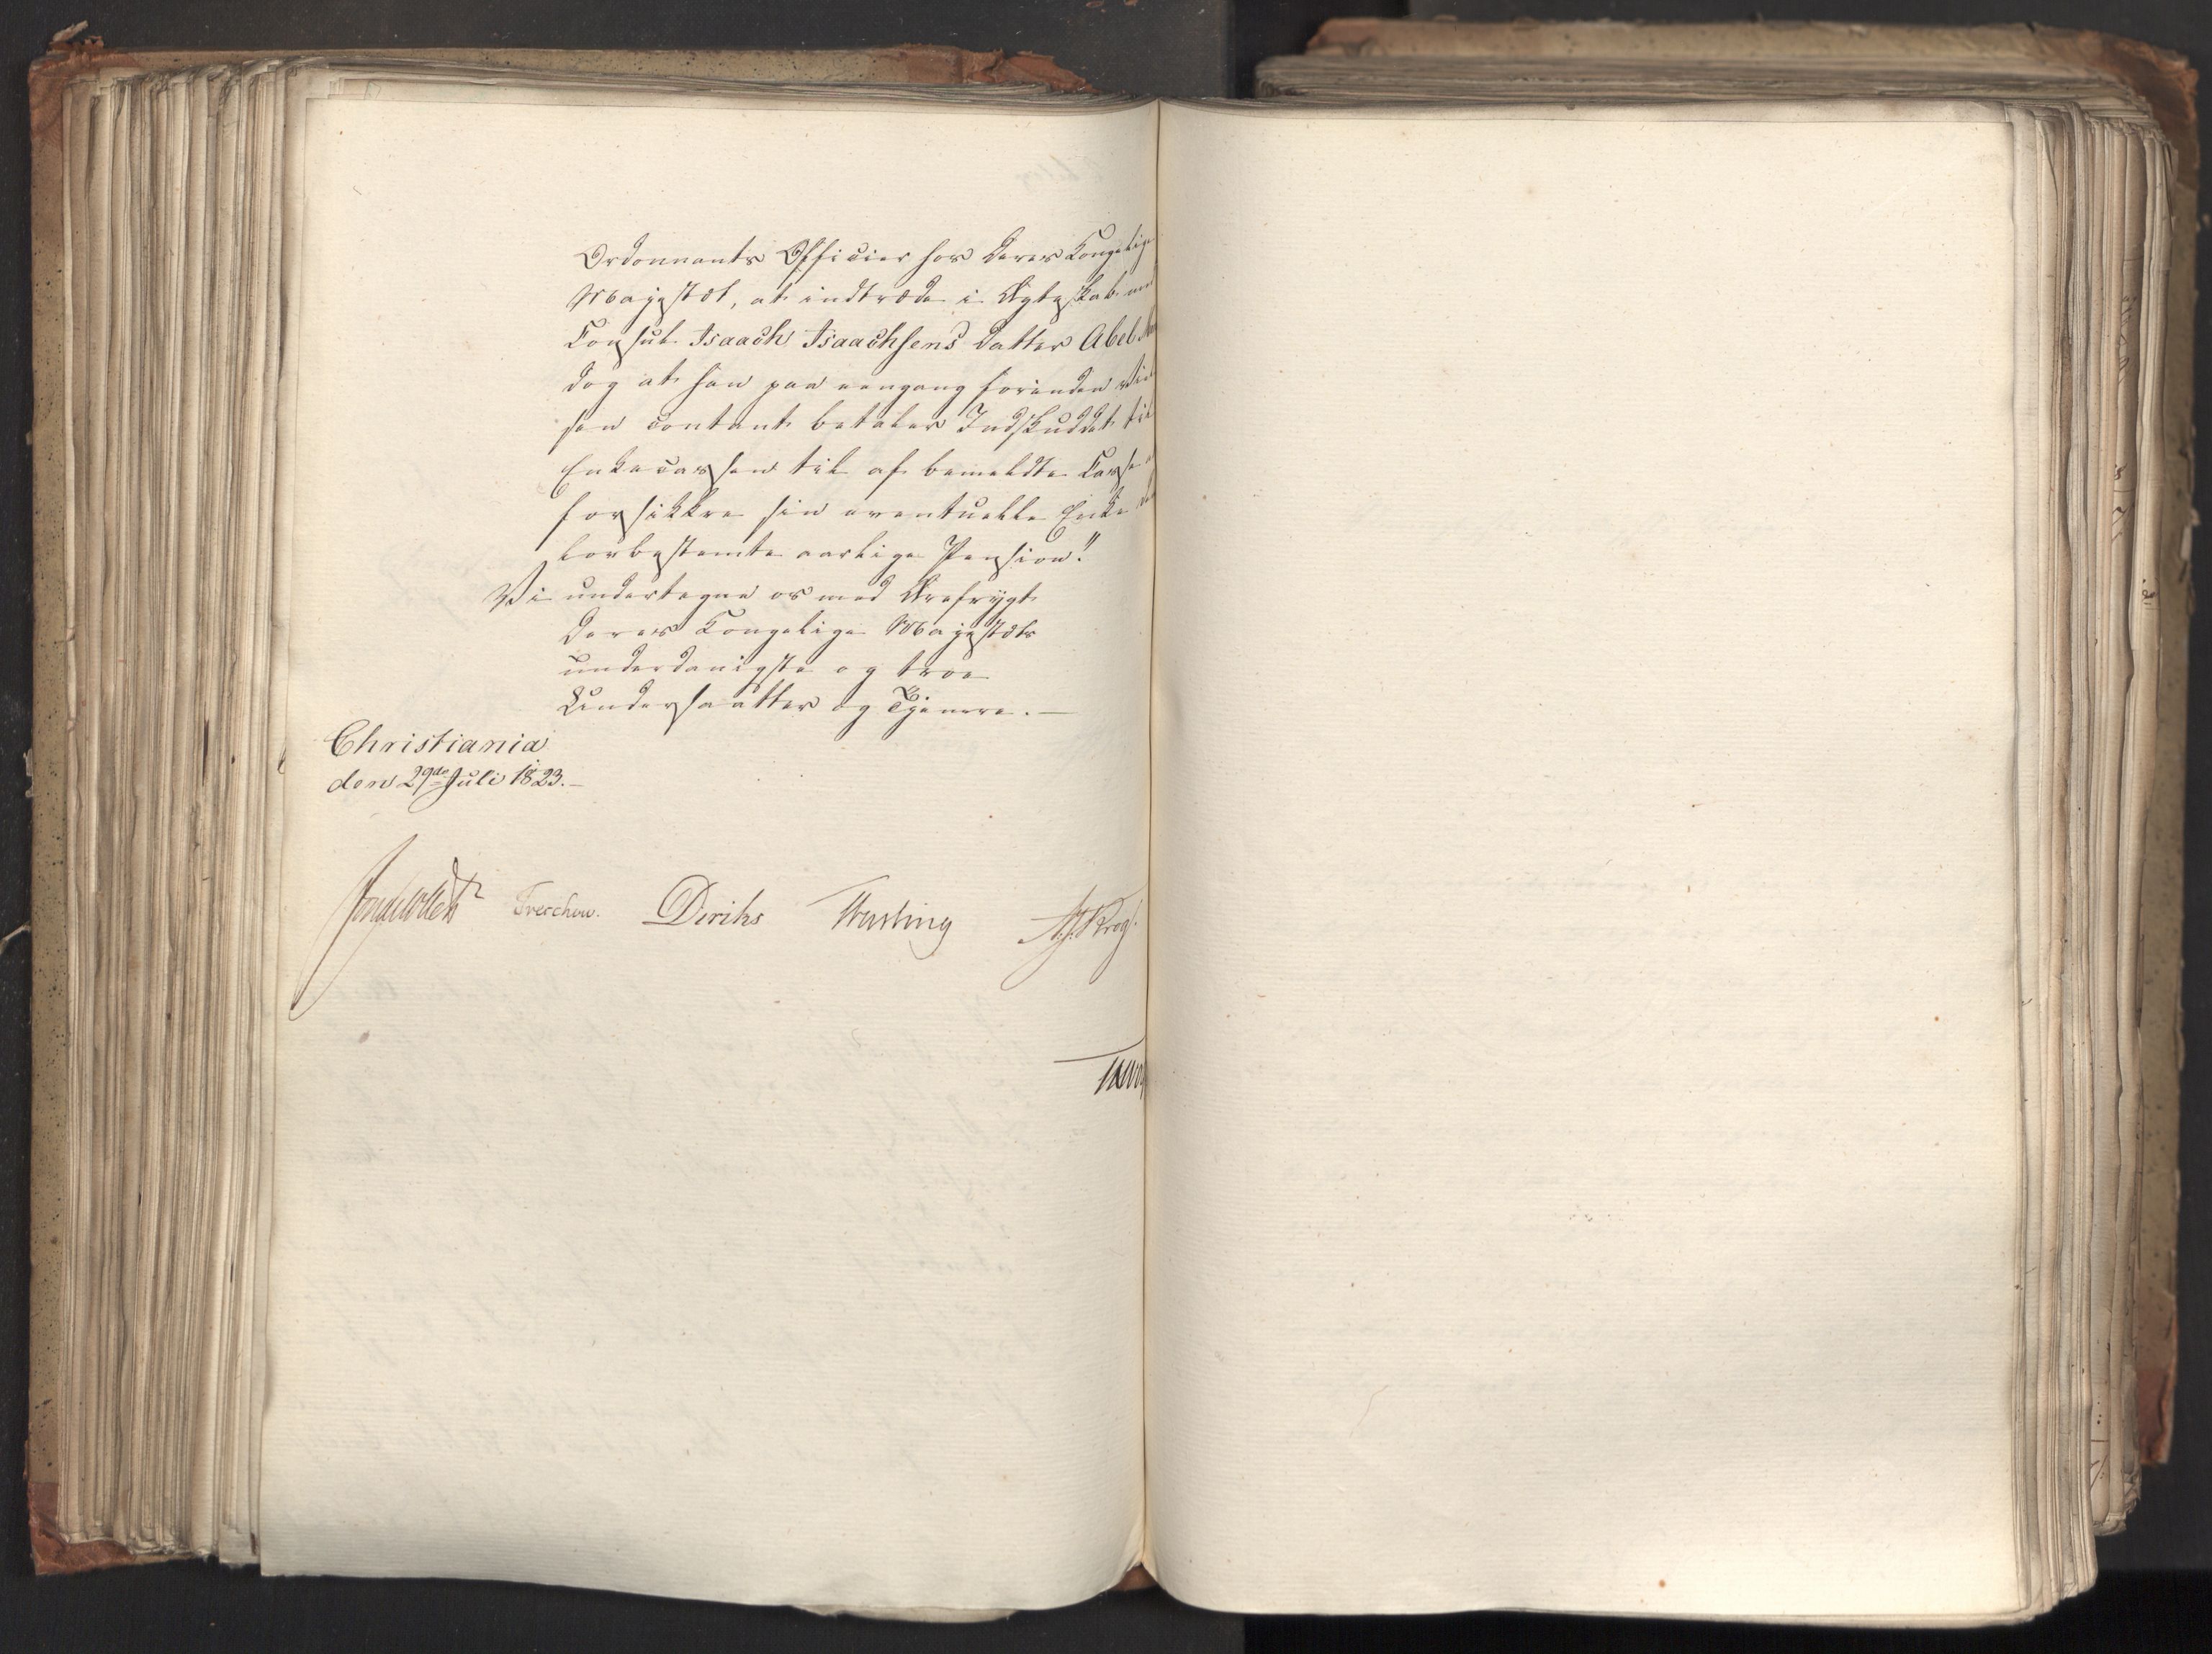 Ordonnants Officier hos Deres Kongelige
Majestæt, at indtræde i Ægteskab med
Consul Isaach Isaachsens Datter Abel
dog at han paa eengang forinden
sen contant betaler Indskuddet til
Enkecassen til af bemeldte Casse
forsikkre sin eventuelle Enke
lovbestemte aarlige Pension!"
Vi undertegne os med Ærefrygt
Deres Kongelige Majestæts
underdanigste og troe
Undersaatter og Tjenere.—
Christiania
den 29de Juli 1823.—
Treschow. Diriks